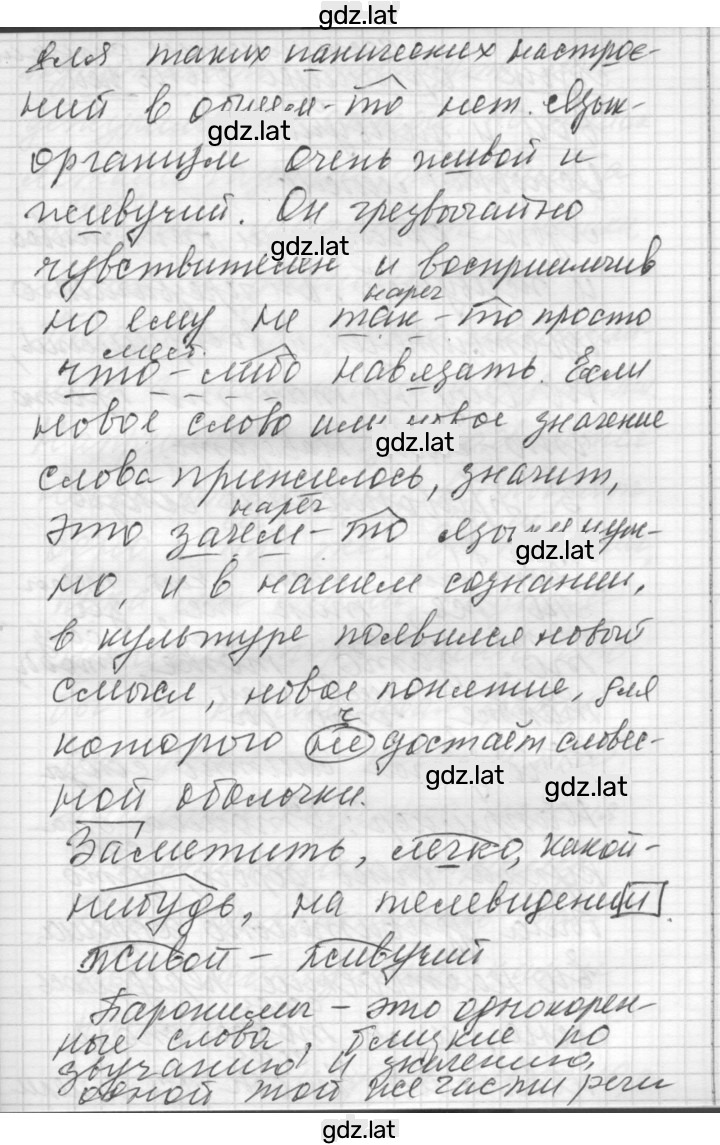 gdz.lat
для таких панических настрое-
ний в общем-то нет. Язык-
gdz.lat
организм очень живой и
живучий. Он чрезвычайно
gdz.lat
чувствителен и восприимчив
нареч
но ему не так-то просто
мест.
что-либо навязать. Если
новое слово или новое значение
gdz.lat
слова прижилось, значит,
нареч
это зачем-то языку нуж-
gdz.lat
но, и в нашем сознании,
в культуре появился новый
смысл, новое понятие, для
ч
которого не достаёт словес-
gdz.lat
ной оболочки.
gdz.lat
Заметить, легко, какой-
нибудь, на телевидении.
живой - живучий
Паронимы - это однокорен-
ные слова, близкие по
звучанию и значению,
одной той же части речи
gdz.lat